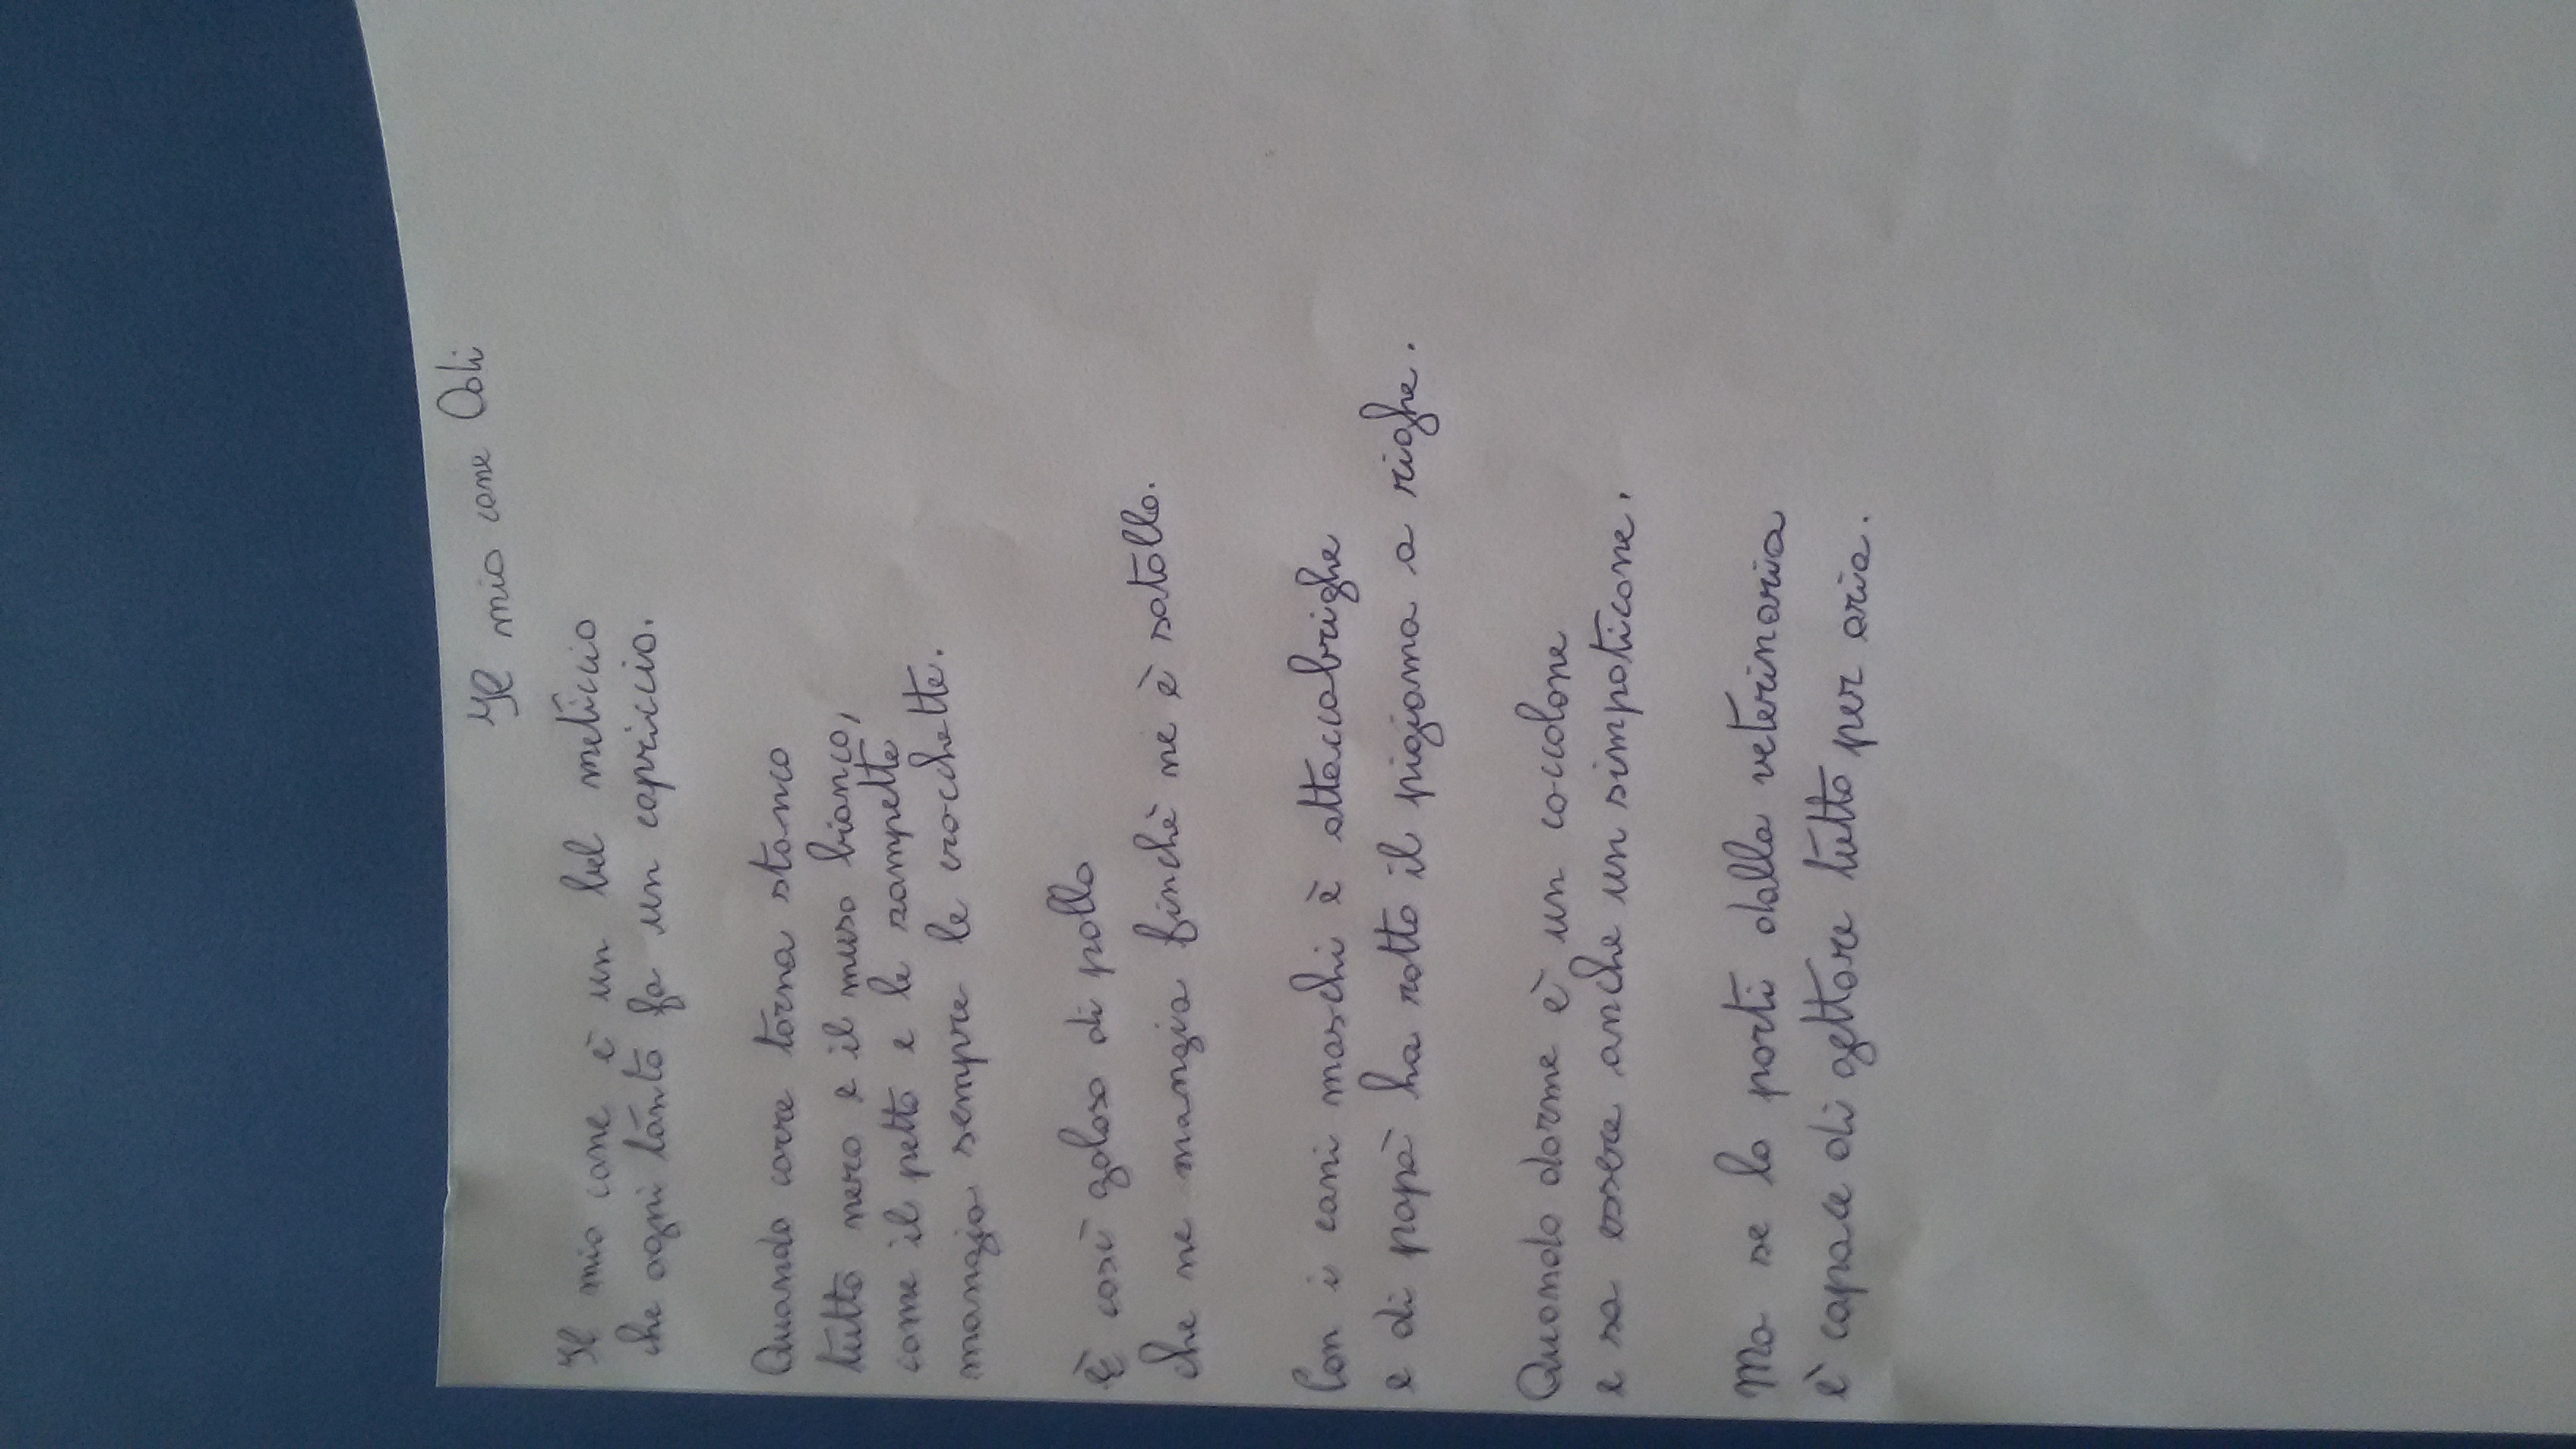 Il mio cane Odi
Il mio cane è un bel meticcio
che ogni tanto fa un capriccio.
Quando corre torna stanco
tutto nero e il muso bianco,
come il petto e le zampette
mangia sempre le crocchette.
È così goloso di pollo
che ne mangia finchè ne è satollo.
Con i cani maschi è attaccabrighe
e di papà ha rotto il pigiama a righe.
Quando dorme è un coccolone
e sa essere anche un simpaticone.
Ma se lo porti dalla veterinaria
è capace di gettare tutto per aria.